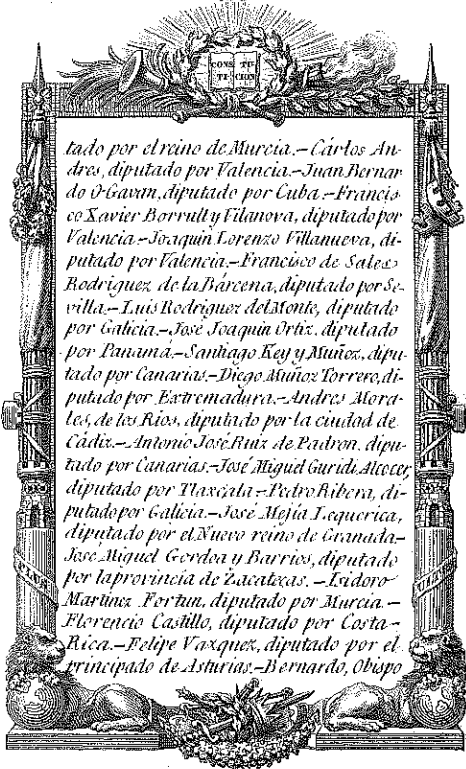 CONS TU
TI CION
tado por el reino de Murcia.—Cárlos An-
dres, diputado por Valencia.—Juan Bernar
do O-Gavan, diputado por Cuba.—Francis-
co Xavier Borrull y Vilanova, diputado por
Valencia.—Joaquin Lorenzo Villanueva, di-
putado por Valencia.—Francisco de Sales
Rodriguez de la Bárcena, diputado por Se-
villa.—Luis Rodriguez del Monte, diputado
por Galicia.—José Joaquin Ortiz, diputado
por Panamá.—Santiago Key y Muñoz, dipu-
tado por Canarias.—Diego Muñoz Torrero, di-
putado por Extremadura.—Andres Mora-
les, de los Rios, diputado por la ciudad de
Cádiz.—Antonio José Ruiz de Padron, dipu-
tado por Canarias.—José Miguel Guridi Alcocer,
diputado por Tlaxcala.—Pedro Ribera, di-
putado por Galicia.—José Mejía Lequerica,
diputado por el Nuevo reino de Granada—
José Miguel Gordoa y Barrios, diputado
por la provincia de Zacatecas.—Isidoro
Martinez Fortun, diputado por Murcia.—
Florencio Castillo, diputado por Costa-
Rica.—Felipe Vazquez, diputado por el
principado de Asturias.—Bernardo, Obispo
PLUS
ULTRA